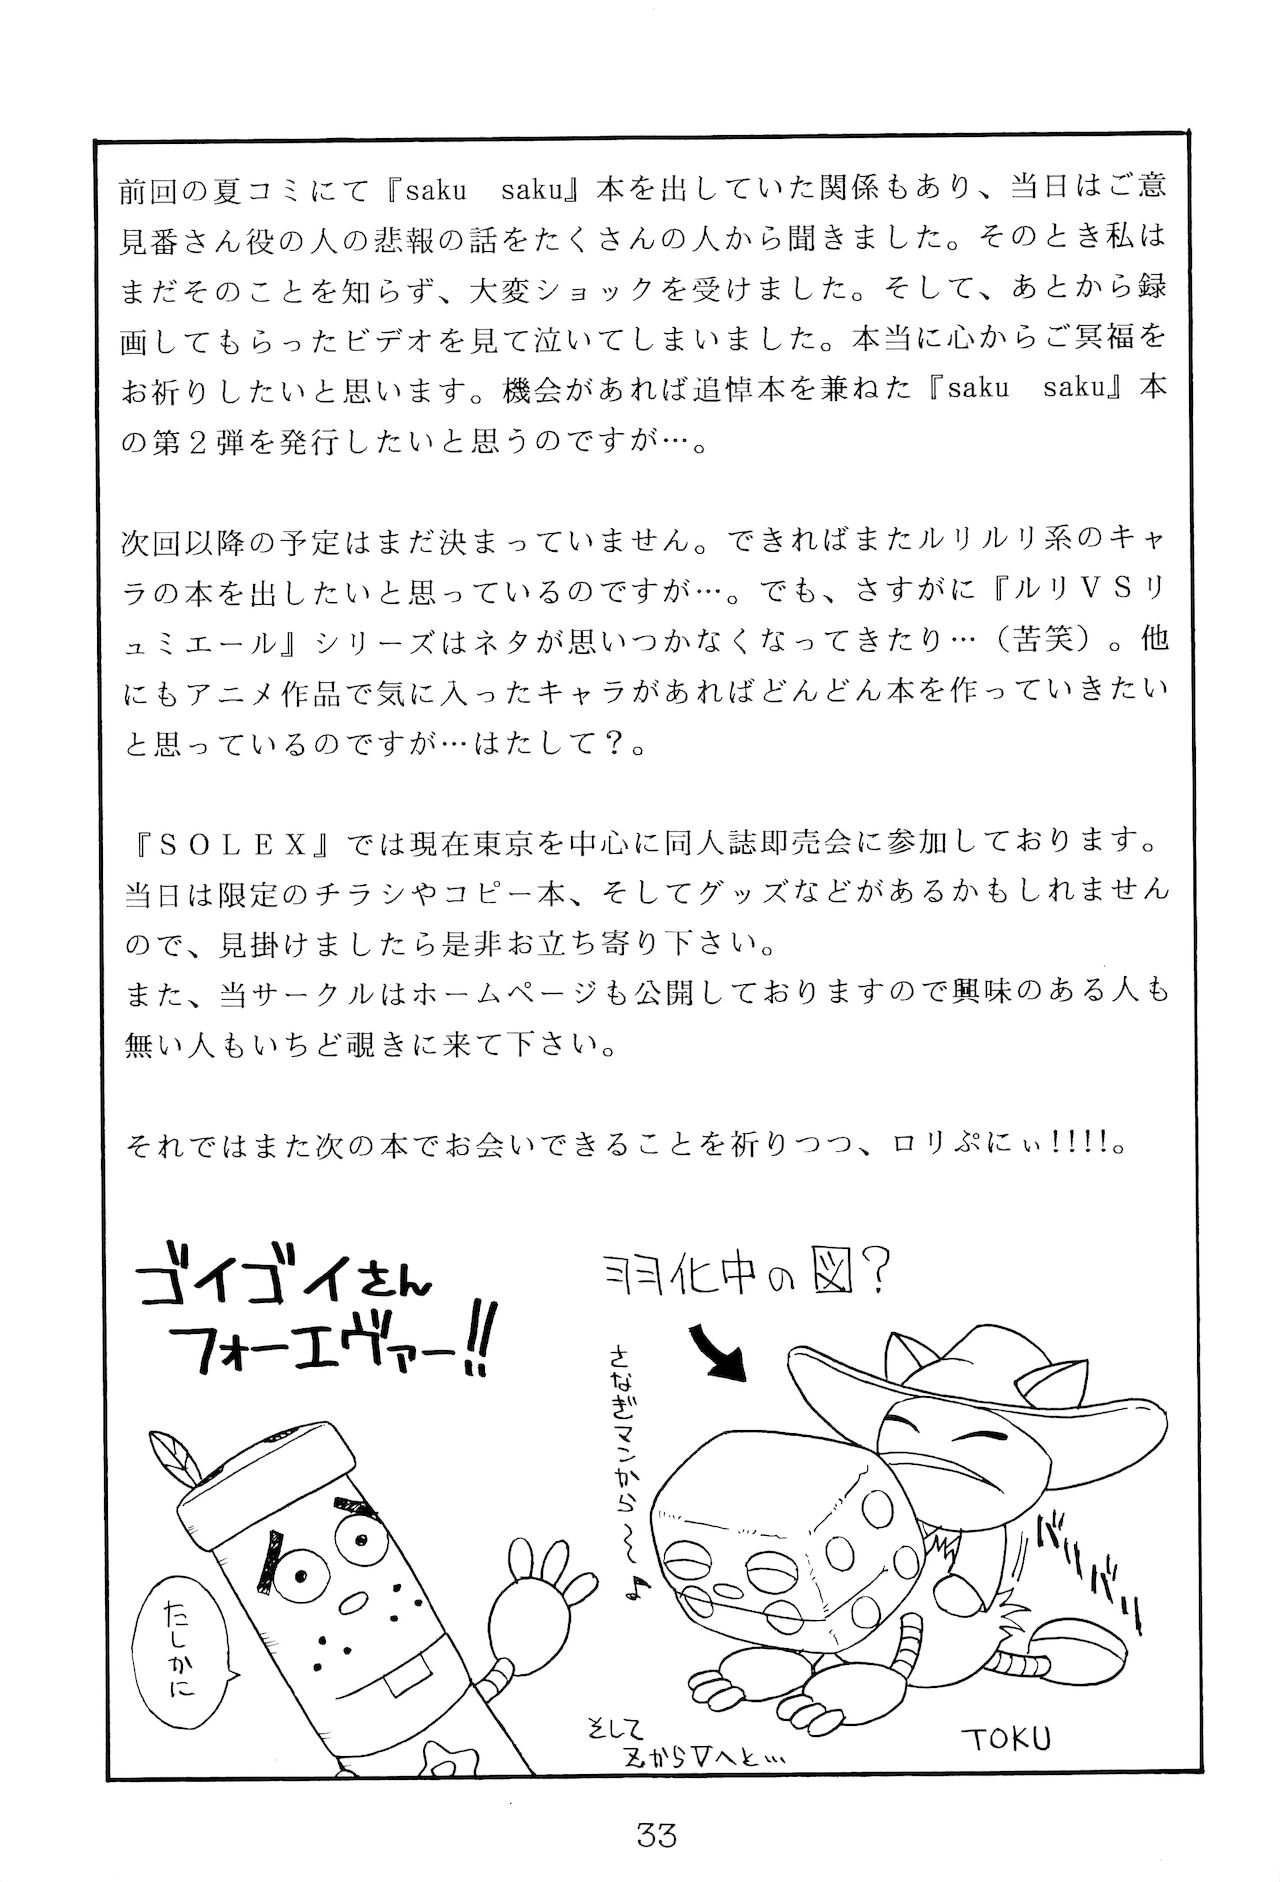 前回の夏コミにて『saku　saku』本を出していた関係もあり、当日はご意
見番さん役の人の悲報の話をたくさんの人から聞きました。そのとき私は
まだそのことを知らず、大変ショックを受けました。そして、あとから録
画してもらったビデオを見て泣いてしまいました。本当に心からご冥福を
お祈りしたいと思います。機会があれば追悼本を兼ねた『saku　saku』本
の第２弾を発行したいと思うのですが…。
次回以降の予定はまだ決まっていません。できればまたルリルリ系のキャ
ラの本を出したいと思っているのですが…。でも、さすがに『ルリＶＳリ
ュミエール』シリーズはネタが思いつかなくなってきたり…（苦笑）。他
にもアニメ作品で気に入ったキャラがあればどんどん本を作っていきたい
と思っているのですが…はたして？。
『ＳＯＬＥＸ』では現在東京を中心に同人誌即売会に参加しております。
当日は限定のチラシやコピー本、そしてグッズなどがあるかもしれません
ので、見掛けましたら是非お立ち寄り下さい。
また、当サークルはホームページも公開しておりますので興味のある人も
無い人もいちど覗きに来て下さい。
それではまた次の本でお会いできることを祈りつつ、ロリぷにぃ!!!!。
ゴイゴイさん
フォーエヴァー!!
羽化中の図？
さなぎマンから〜〜♪
たしかに
バババババッ
そして
Zから▽へと…
TOKU
33